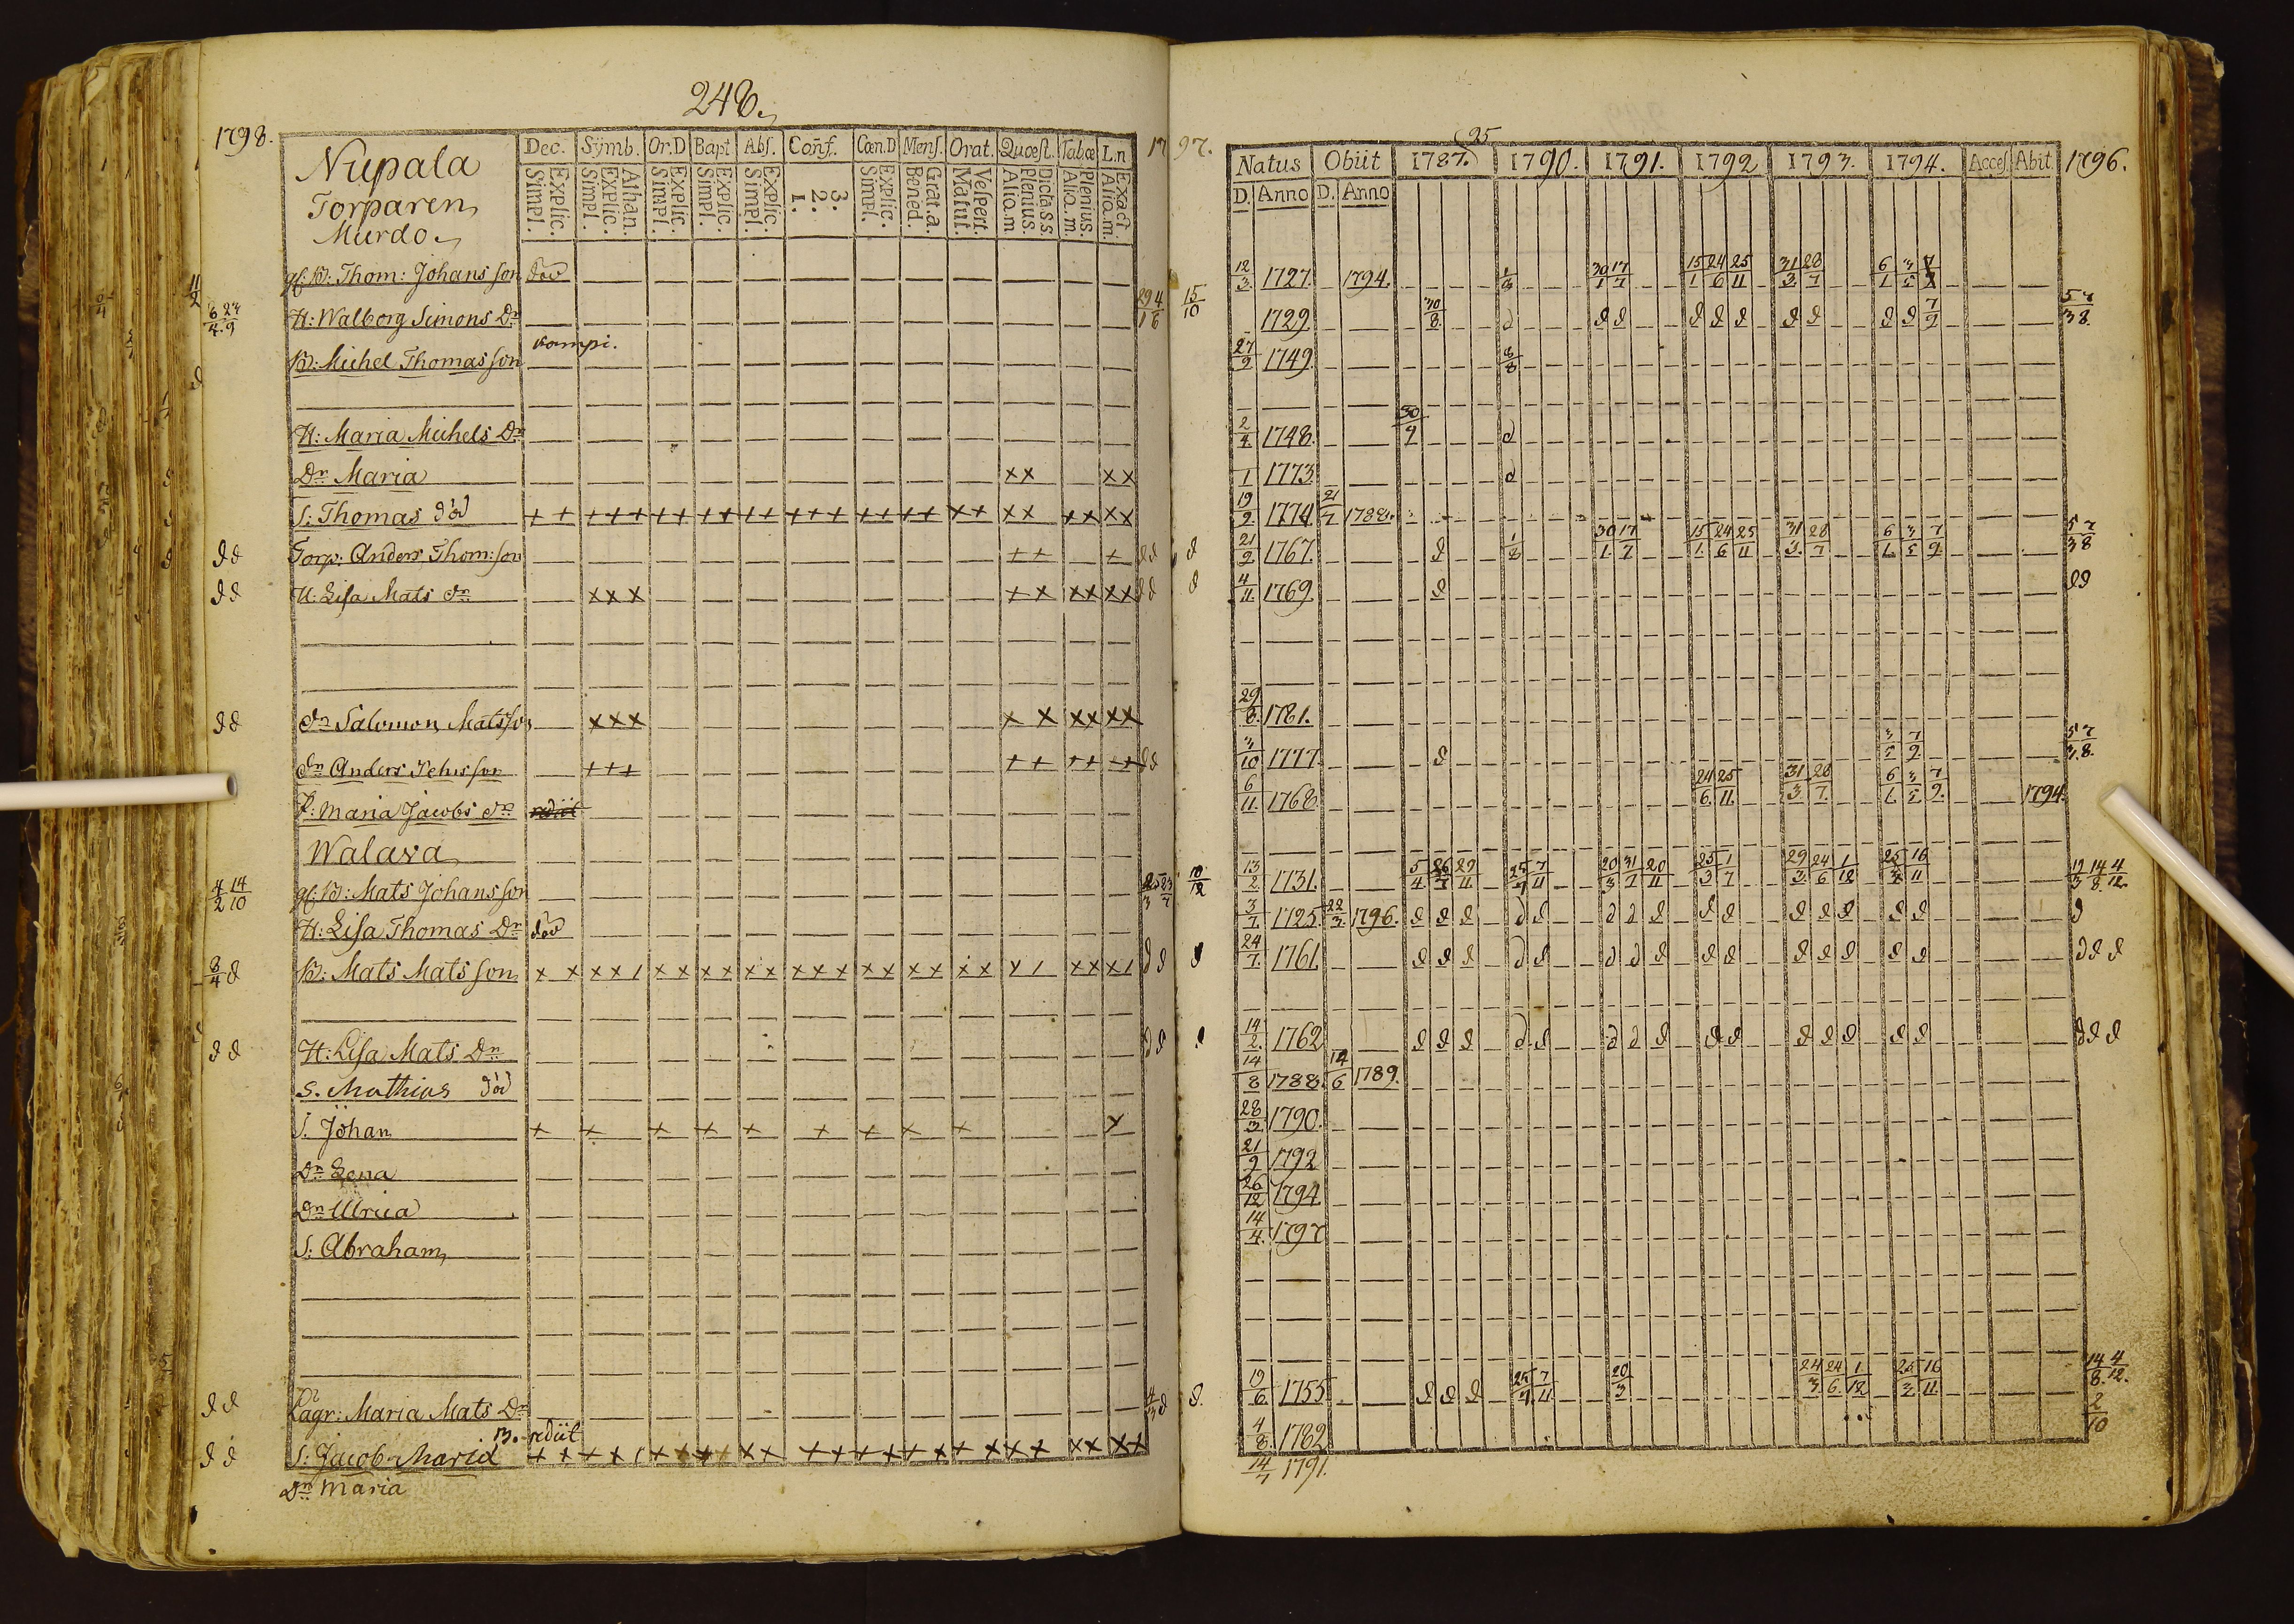 248.
1798.
Nupala
Torparen
Murdo
Dec. Symb. Or.D Bapt Abs. Conf. Cœn.D Mens. Orat. Quœst. Tabœ L.n
Explic. Simpl. Athan. Explic. Simpl. Explic. Simpl. Explic. Simpl. Explic. Simpl. 3. 2. 1. Explic. Simpl. Grat.a. Bened. Vespert. Matut. Dicta S.S. Plenius. Aliq.m Plenius. Aliq.m Exact. Aliq.m.
1797.
Natus Obiit 1787. 95 1790. 1791. 1792 1793. 1794. Acces. Abit 1796.
D. Anno D. Anno
gl: B: Thom: Johans son död 12/3 1727. 1794. 1/8 30/1 17/7 15/1 24/6 25/11 31/3 28/7 6/1 3/5 7/9
6/4 24/9 H: Walborg Simons Dr 29/1 4/6 15/10 1729 30/8 d d d d d d d d d d 7/9 5/3 7/8
kompi.
B: Michel Thomas son 27/9 1749. 8/8
H: Maria Michels Dr 2/4 1748. 30/9 d
Dr Maria xx xx 1 1773. d
S: Thomas död ++ +++ ++ ++ ++ +++ ++ ++ xx xx xx xx 19/9 1774 21/7 1788.
d d Torp: Anders Thom:son ++ + d d d 21/9 1767. d 1/8 30/1 17/7 15/1 24/6 25/11 31/3 28/7 6/1 3/5 7/9 5/3 7/8
d d H: Lisa Mats dr xxx xx xx xx d d d 4/11 1769. d d d
d d dr Salomon Matsson xxx xx xx xx 29/8 1781.
dn Anders Pehrsson +++ ++ ++ ++ d d 3/10 1777. d 3/5 7/9 5/3 7/8
P: Maria Jacobs dr rediit 6/11 1768. 24/6 25/11 31/3 28/7 6/1 3/5 7/9 1794.
Walava
4/2 14/10 gl: B: Mats Johansson 25/3 23/7 10/12 13/2 1731. 5/4 26/7 29/11 25/4 7/11 20/3 31/7 20/11 25/3 1/7 29/3 24/6 1/12 25/3 16/11 12/3 14/8 4/12
H: Lisa Thomas Dr död 3/7 1725 22/3 1796. d d d d d d d d d d d d d d d d
8/4 d B: Mats Mats son xx xx/ xx xx xx xxx xx xx xx x/ xx x/ d d d 24/7 1761. d d d d d d d d d d d d d d d d d d
d d H: Lisa Mats Dr d d d 14/2 1762 d d d d d d d d d d d d d d d d d d
S. Mathias död 14/8 1788. 14/6 1789.
S. Johan + + + + + + + + + x 28/3 1790.
Dr Lena 21/9 1792
Dr Ulrica 26/12 1794
S: Abraham 14/4 1797
d d Lagr: Maria Mats Dr 4/3 d d. 19/6 1755. d d d 25/4 7/11 20/3 24/3 24/6 1/12 25/3 16/11 14/8 4/12
B. rediit
d d S: Jacob ++ ++/ ++ ++ xx ++ ++ ++ ++ xx xx xx 4/8 1782 2/10
Dr Maria 14/7 1791.